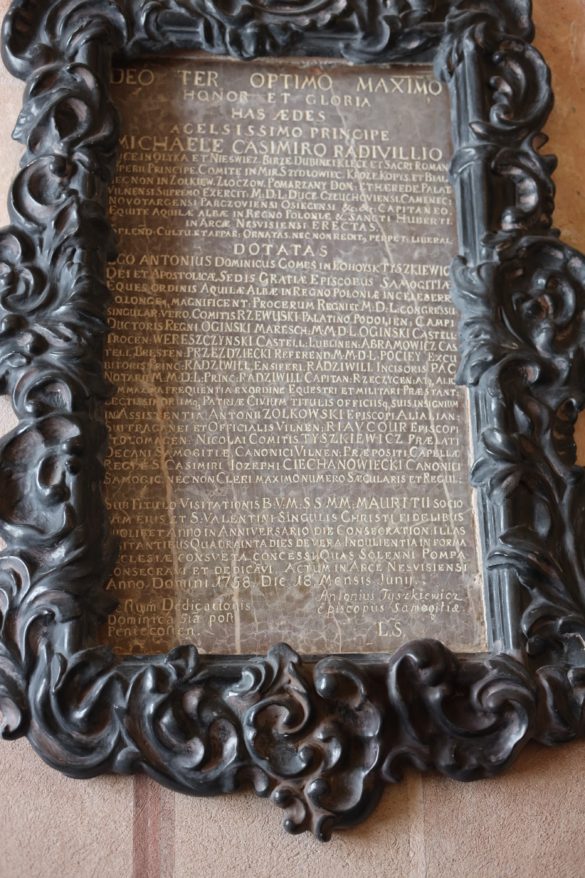 DEO TER OPTIMO MAXIMO
HONOR ET GLORIA
HAS ÆDES
A CELSISSIMO PRINCIPE
MICHAELE CASIMIRO RADIVILLIO
DUCE IN OLYKA ET NIESWIZ, BIRZE DUBINKI KLECK ET SACRI ROMANI
IMPERII PRINCIPE, COMITE IN MIR, SZYDLOWIEC, KROŻE, KOPYS, ET
NEC NON IN ZOLKIEW, ZLOCZOW, POMARZANY DOM: ET HÆREDE PALAT
VILNENSI SUPREMO EXERCIT: M.D.L. DUCE CZLUCHOVIENSI, CAMENEC
NOVOTARGENSI PARCZOVIENSI OSTRENSI & & & CAPITANEO
EQUITE AQUILÆ ALBÆ IN REGNO POLONIÆ & SANCTI HUBERTI
IN ARCE NESVISIENSI ERECTAS
SPLEND: CULTU ET APPAR: ORNATAS, NEC NON REDIT: PERPET: LIBERAL
DOTATAS
EGO ANTONIUS DOMINICUS COMES IN ŁOHOYSK TYSZKIEWICZ
DEI ET APOSTOLICÆ SEDIS GRATIA EPISCOPUS SAMOGITIÆ
EQUES ORDINIS AQUILÆ ALBÆ IN REGNO POLONIÆ IN CELEBERR
MAGNIFICENT: PROCERUM REGNI ET M.D.L. CONGRESSU
SINGULAR: VERO, COMITIS RZEWUSKI PALATINO PODOLIEN: CAMPI
DUCTORIS REGNI, OGINSKI MARESCH: M.M.D.L. OGINSKI CASTELL:
TROCEN: WERESZCZYNSKI CASTELL: LUBLINEN: ABRAMOWICZ CAS
TELL: BRESTEN: PRZEZDZIECKI REFEREND: M.M.D.L. POCIEY EXCU
BITORIS, PRINC: RADZIWILL ENSIFERI, RADZIWILL INCISORIS PAC
NOTARII M.M.D.L. PRINC: RADZIWILL CAPITAN: RZECZYCEN: ATQ: ALB
FREQUENTIA EORUM: EQUESTRI ET MILITARI PRÆSTANT:
LECTISSIMORUMQ: PATRIÆ CIVIUM TITULIS OFFICIISQ: SUIS INSIGNIUM
IN ASSISTENTIA ANTONII ZOLKOWSKI EPISCOPI
SUFFRAGANEI ET OFFICIALIS VILNEN: RIAUCOUR EPISCOPI
PTOLOMACEN: NICOLAI COMITIS TYSZKIEWICZ PRÆLATI
DECANI SAMOGITIÆ CANONICI VILNEN: PRÆPOSITI CAPELLÆ
REGIÆ S CASIMIRI IOZEPHI CIECHANOWIECKI CANONICI
SAMOGIC: NEC NON CLERI MAXIMO NUMERO SÆCULARIS ET REGUL:
SUB TITULO VISITATIONIS B.V.M. S.S. M.M. MAURITII SOCIO
RUM EIUS ET S. VALENTINI: SINGULIS CHRISTI FIDELIBUS
IN ANNIVERSARIO DIE CONSECRATION: ILLAS
VISITANTIBUS QUADRAINTA DIES DE VERA INDULIENTIA IN FORMA
ECCLESIÆ CONSVETA CONCESSI: QUAS SOLENNI POMPA
CONSECRAVI ET DEDICAVI. ACTUM IN ARCE NESVISIENSI
ANNO. DOMINI. 1758. DIE. 18. MENSIS JUNII.
Festum Dedicationis
Dominica 5ta post
Pentecosten
Antonius Tyszkiewicz
episcopus Samogitiæ
L.S.